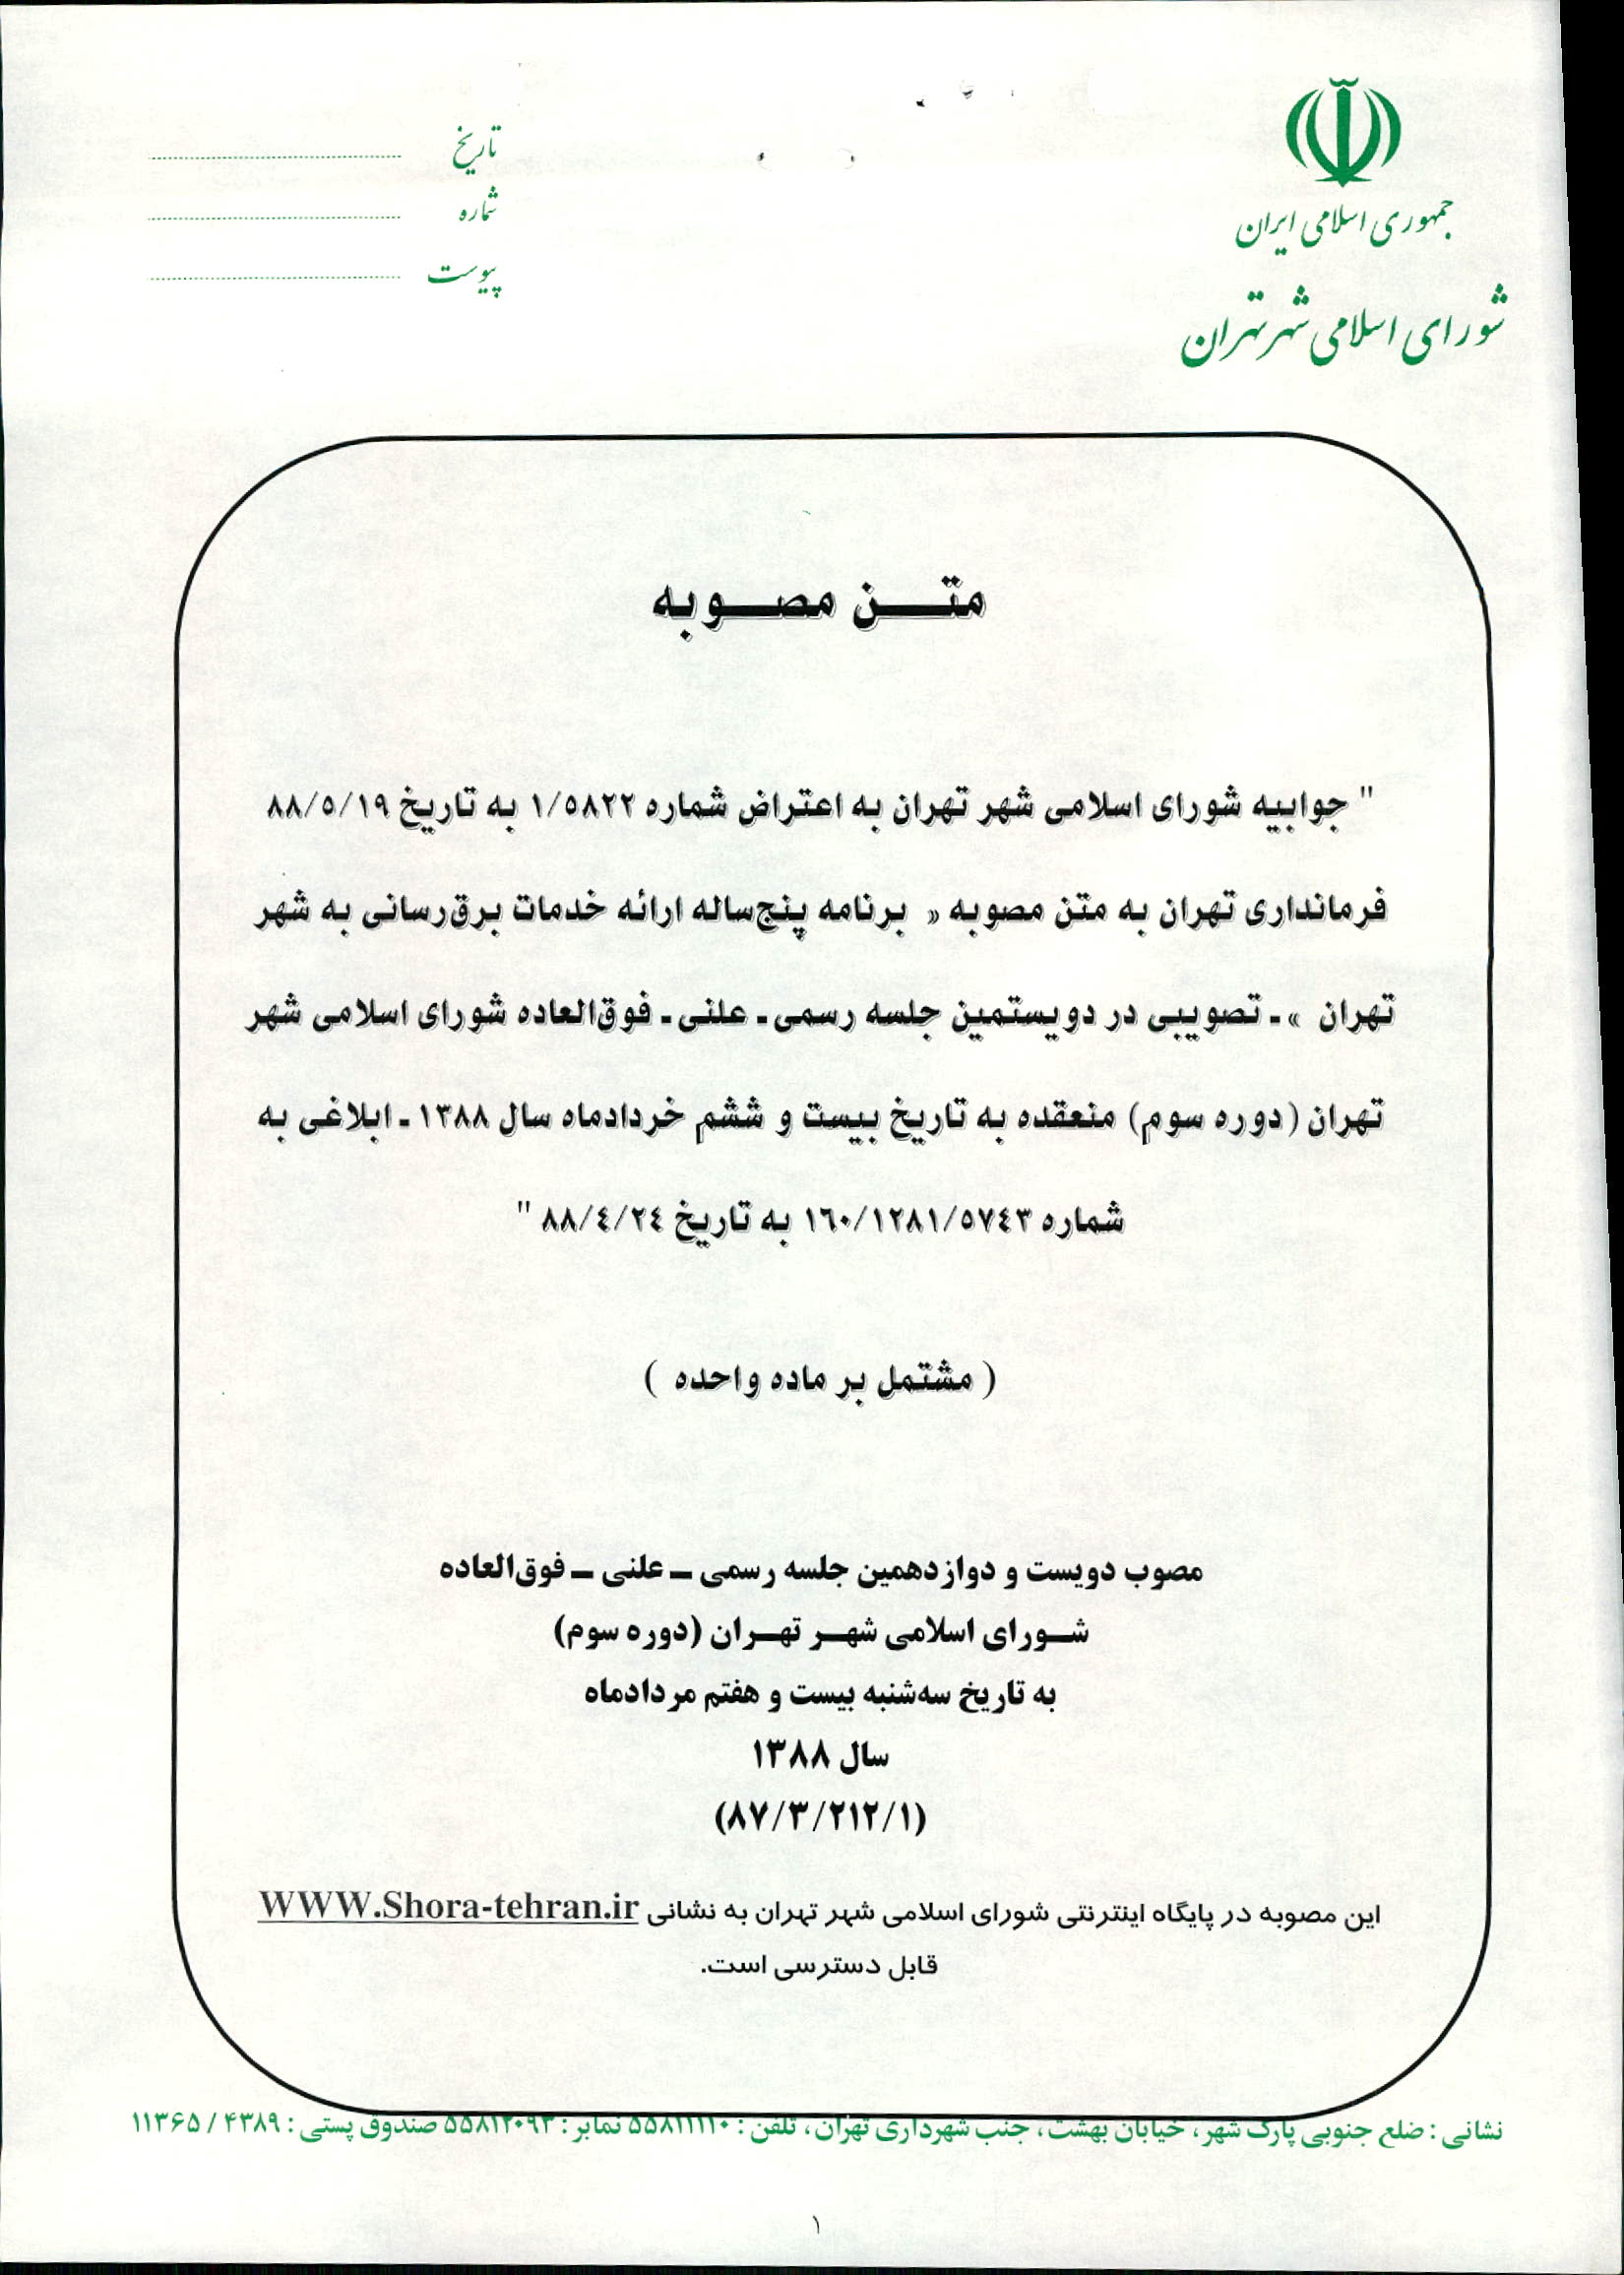 جمهوری اسلامی ایران
شورای اسلامی شهر تهران
تاریخ
شماره
پیوست
متن مصوبه
" جوابیه شورای اسلامی شهر تهران به اعتراض شماره ۱/۵۸۲۲ به تاریخ ۸۸/۵/۱۹
فرمانداری تهران به متن مصوبه « برنامه پنج‌ساله ارائه خدمات برق‌رسانی به شهر
تهران » ـ تصویبی در دویستمین جلسه رسمی ـ علنی ـ فوق‌العاده شورای اسلامی شهر
تهران (دوره سوم) منعقده به تاریخ بیست و ششم خردادماه سال ۱۳۸۸ ـ ابلاغی به
شماره ۱۶۰/۱۲۸۱/۵۷۴۳ به تاریخ ۸۸/۴/۲۴ "
( مشتمل بر ماده واحده )
مصوب دویست و دوازدهمین جلسه رسمی ـ علنی ـ فوق‌العاده
شورای اسلامی شهر تهران (دوره سوم)
به تاریخ سه‌شنبه بیست و هفتم مردادماه
سال ۱۳۸۸
(۸۷/۳/۲۱۲/۱)
این مصوبه در پایگاه اینترنتی شورای اسلامی شهر تهران به نشانی WWW.Shora-tehran.ir
قابل دسترسی است.
نشانی : ضلع جنوبی پارک شهر، خیابان بهشت، جنب شهرداری تهران، تلفن : ۵۵۸۱۱۱۱۰ نمابر : ۵۵۸۱۲۰۹۳ صندوق پستی : ۴۳۸۹ / ۱۱۳۶۵
۱